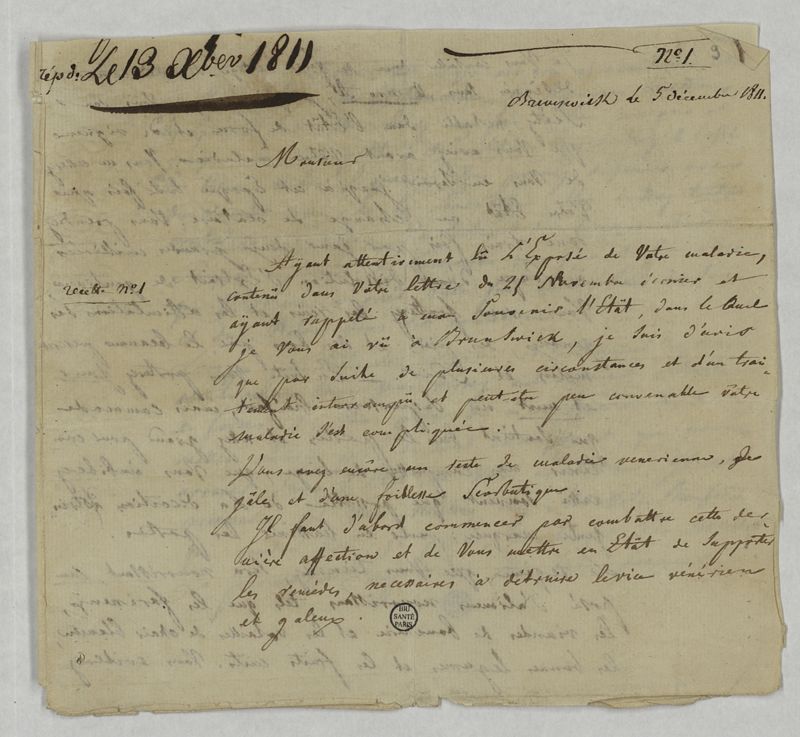 répd. Le 13 Xber 1811
No 1.
9
Brunswick le 5 décembre 1811.
Monsieur
Ayant attentivement lû L'Exposé de Votre maladie,
recette No 1
contenû dans Votre lettre du 25 Novembre dernier et
aÿant rappelé à mon Souvenir l'Etât, dans le Quel
je Vous ai vû à Brunswick, je suis d'avis
que par Suite de plusieures circonstances et d'un trai-
tement interrompû et peut-être peu convenable vôtre
maladie s'est compliquée.
Vous avez encôre un reste de maladie venerienne, de
gâles et d'une foiblesse Scorbutique.
Il faut d'abord commencer par combattre cette der-
nière affection et de Vous mettre en Etât de Supporter
les remédes necessaires à détruire le vice vénérien
et galeux.
BIU
SANTÉ
PARIS